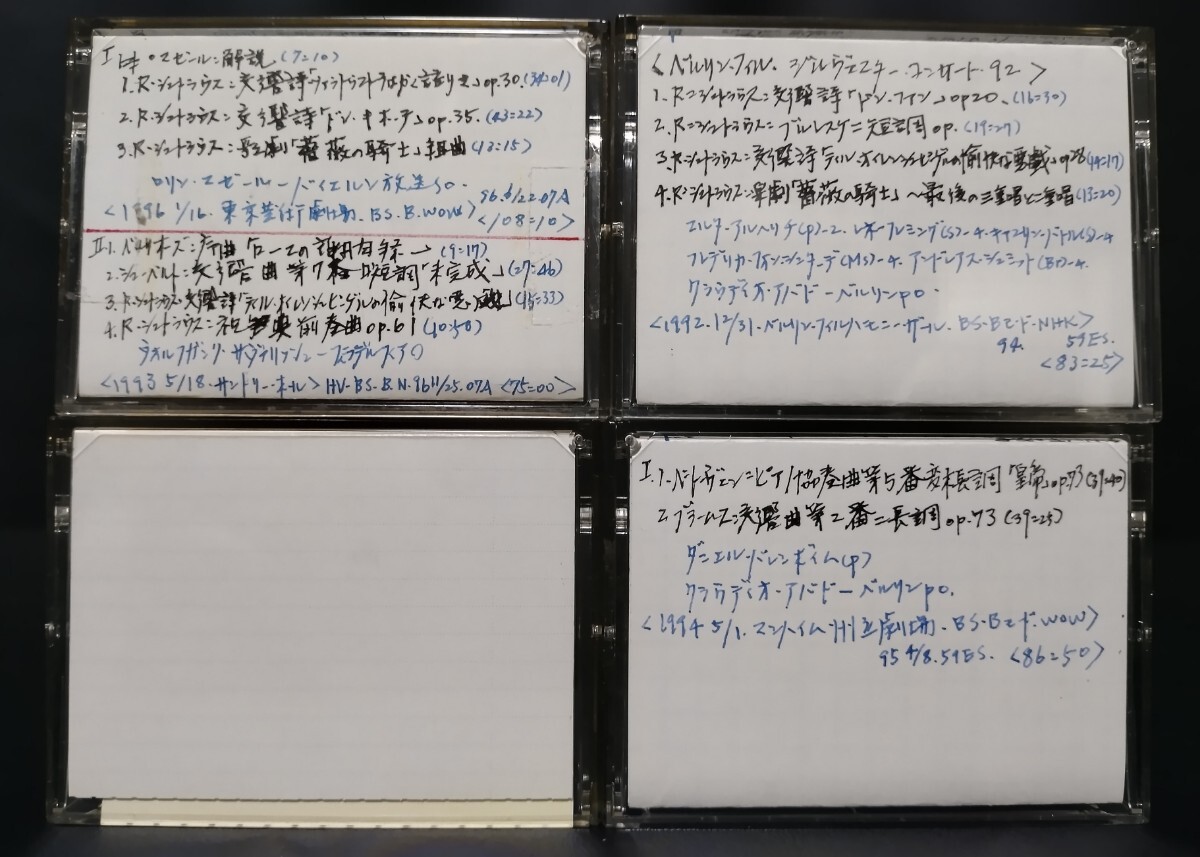 I ・マゼール:解説(7=10)
1.R・シュトラウス:交響詩「ツァラトゥストラはかく語りき」op.30.(34=01)
2.R・シュトラウス:交響詩「ドン・キホーテ」op.35.(43=22)
3.R・シュトラウス:歌劇「薔薇の騎士」組曲(12=15)
ロリン・マゼール-バイエルン放送so.
<1996 1/16.東京芸術劇場.BS.B.WOW> 96.6/22.07A
<108=10>
II 1.ベルリオーズ:序曲「ローマの謝肉祭」(9=17)
2.シューベルト:交響曲第7番ロ短調「未完成」(27=46)
3.R・シュトラウス:交響詩「ティル・オイレンシュピーゲルの愉快な悪戯」(15=33)
4.R・シュトラウス:祝典前奏曲op.61(10:50)
ウオルフガング・サヴァリッシュ-
<1993 5/18.サントリーホール> HV-BS-B.N.96 11/25.07A <75=00>
<ベルリン・フィル.ジルヴェスター.コンサート.92>
1.R=シュトラウス:交響詩「ドン・ファン」op20.(16=30)
2.R=シュトラウス=ブルレスケニ短調op.(19=27)
3.R・シュトラウス:交響詩「ティル・オイレンシュピーゲルの愉快な悪戯」op28(14=17)
4.R・シュトラウス:楽劇「薔薇の騎士」~最後の三重唱と二重唱(13=20)
マルタ・アルヘリチ(P)-2.ルネ・フレミング(S)-4.キャスリン・バトル(S)-4
フレデリカ・フォン・シュターデ(MS)-4.アンドレアス・シュミット(Br)-4.
クラウディオ・アバド-ベルリンpo.
<1992.12/31.ベルリン・フィルハモニーザール.BS-Bモード.NHK>
94. 59ES.
<83=25>
I.1.ベートーヴェン=ピアノ協奏曲第5番変ホ長調「皇帝」op.73(39=40)
2.ブラームス:交響曲第2番ニ長調op.73(39=25)
ダニエル・バレンボイム(P)
クラウディオ・アバド-ベルリンpo.
<1994 5/1.マンハイム州立劇場.BS-Bモード.WOW>
95 4/8.59ES. <86=50>